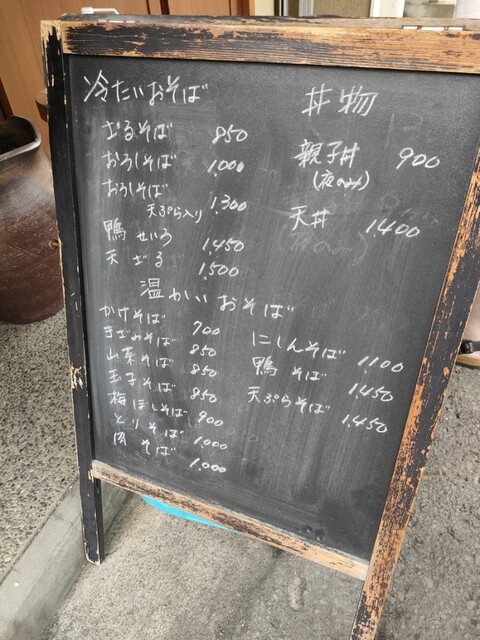 冷たいおそば
ざるそば 850
おろしそば 1000
おろしそば
天ぷら入り 1,300
鴨せいろ 1,450
天ざる 1,500
丼物
親子丼 900
(夜のみ)
天丼 1,400
温かいおそば
かけそば 700
きざみそば 850
山菜そば 850
玉子そば 850
梅ぼしそば 900
とりそば 1,000
肉そば 1,000
にしんそば 1100
鴨そば 1,450
天ぷらそば 1,450